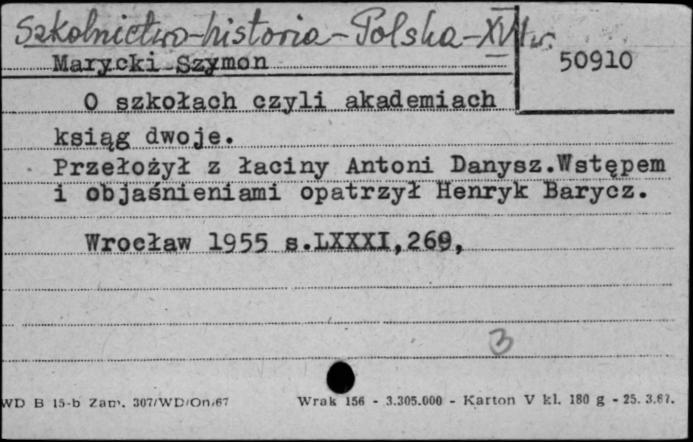 Szkolnictwo-historia-Polska-XVI w.
50910
Marycki Szymon
O szkołach czyli akademiach
ksiąg dwoje.
Przełożył z łaciny Antoni Danysz.Wstępem
i objaśnieniami opatrzył Henryk Barycz.
Wrocław 1955 s.LXXXI,269,
3
WD B 15-b Zam. 307/WD/On/67 Wrak 156 - 3.305.000 - Karton V kl. 180 g - 25. 3.67.